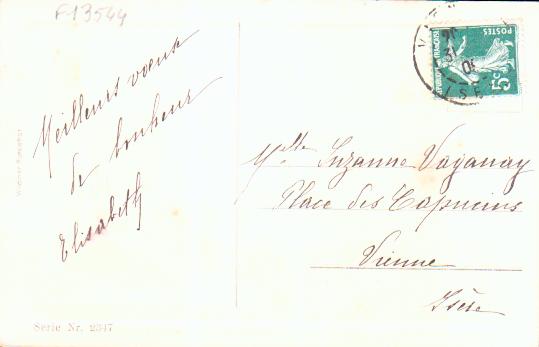 F-13544
Meilleurs vœux
de bonheur
Elisabeth
Mlle Suzanne Vaganay
Place des Capucins
Vienne
Isère
POSTES
5c
REPUBLIQUE FRANÇAISE
Serie Nr. 2347